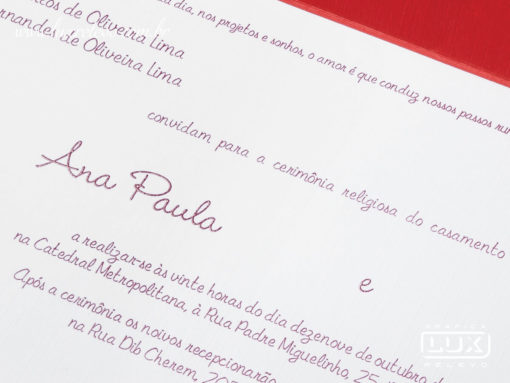 dia, nos projetos e sonhos, o amor é que conduz nossos passos
cos de Oliveira Lima
rnandes de Oliveira Lima
convidam para a cerimônia religiosa do casamento
Ana Paula
e
a realizar-se às vinte horas do dia dezenove de outubro d
na Catedral Metropolitana, à Rua Padre Miguelinho, 25
Após a cerimônia os noivos recepcionarão
na Rua Dib Cherem,
GRÁFICA
LUX
RELEVO